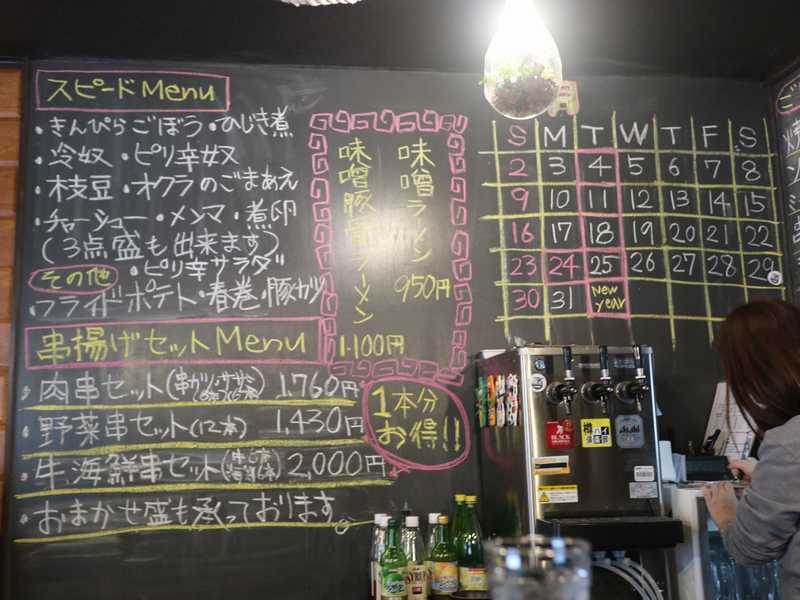 スピードMenu
・きんぴらごぼう・ひじき煮
・冷奴・ピリ辛奴
・枝豆・オクラのごまあえ
・チャーシュー・メンマ・煮卵
(3点盛も出来ます)
その他・ピリ辛サラダ
・フライドポテト・春巻・豚カツ
串揚げセットMenu
・肉串セット 1,760円
・野菜串セット(12本) 1,430円
・牛海鮮串セット 2,000円
・おまかせ盛も承っております
1本分
お得!!
味噌ラーメン 950円
味噌豚骨ラーメン 1,100円
月
S M T W T F S
2 3 4 5 6 7 8
9 10 11 12 13 14 15
16 17 18 19 20 21 22
23 24 25 26 27 28 29
30 31 New year
BLACK
樽ハイ
倶楽部
Asahi